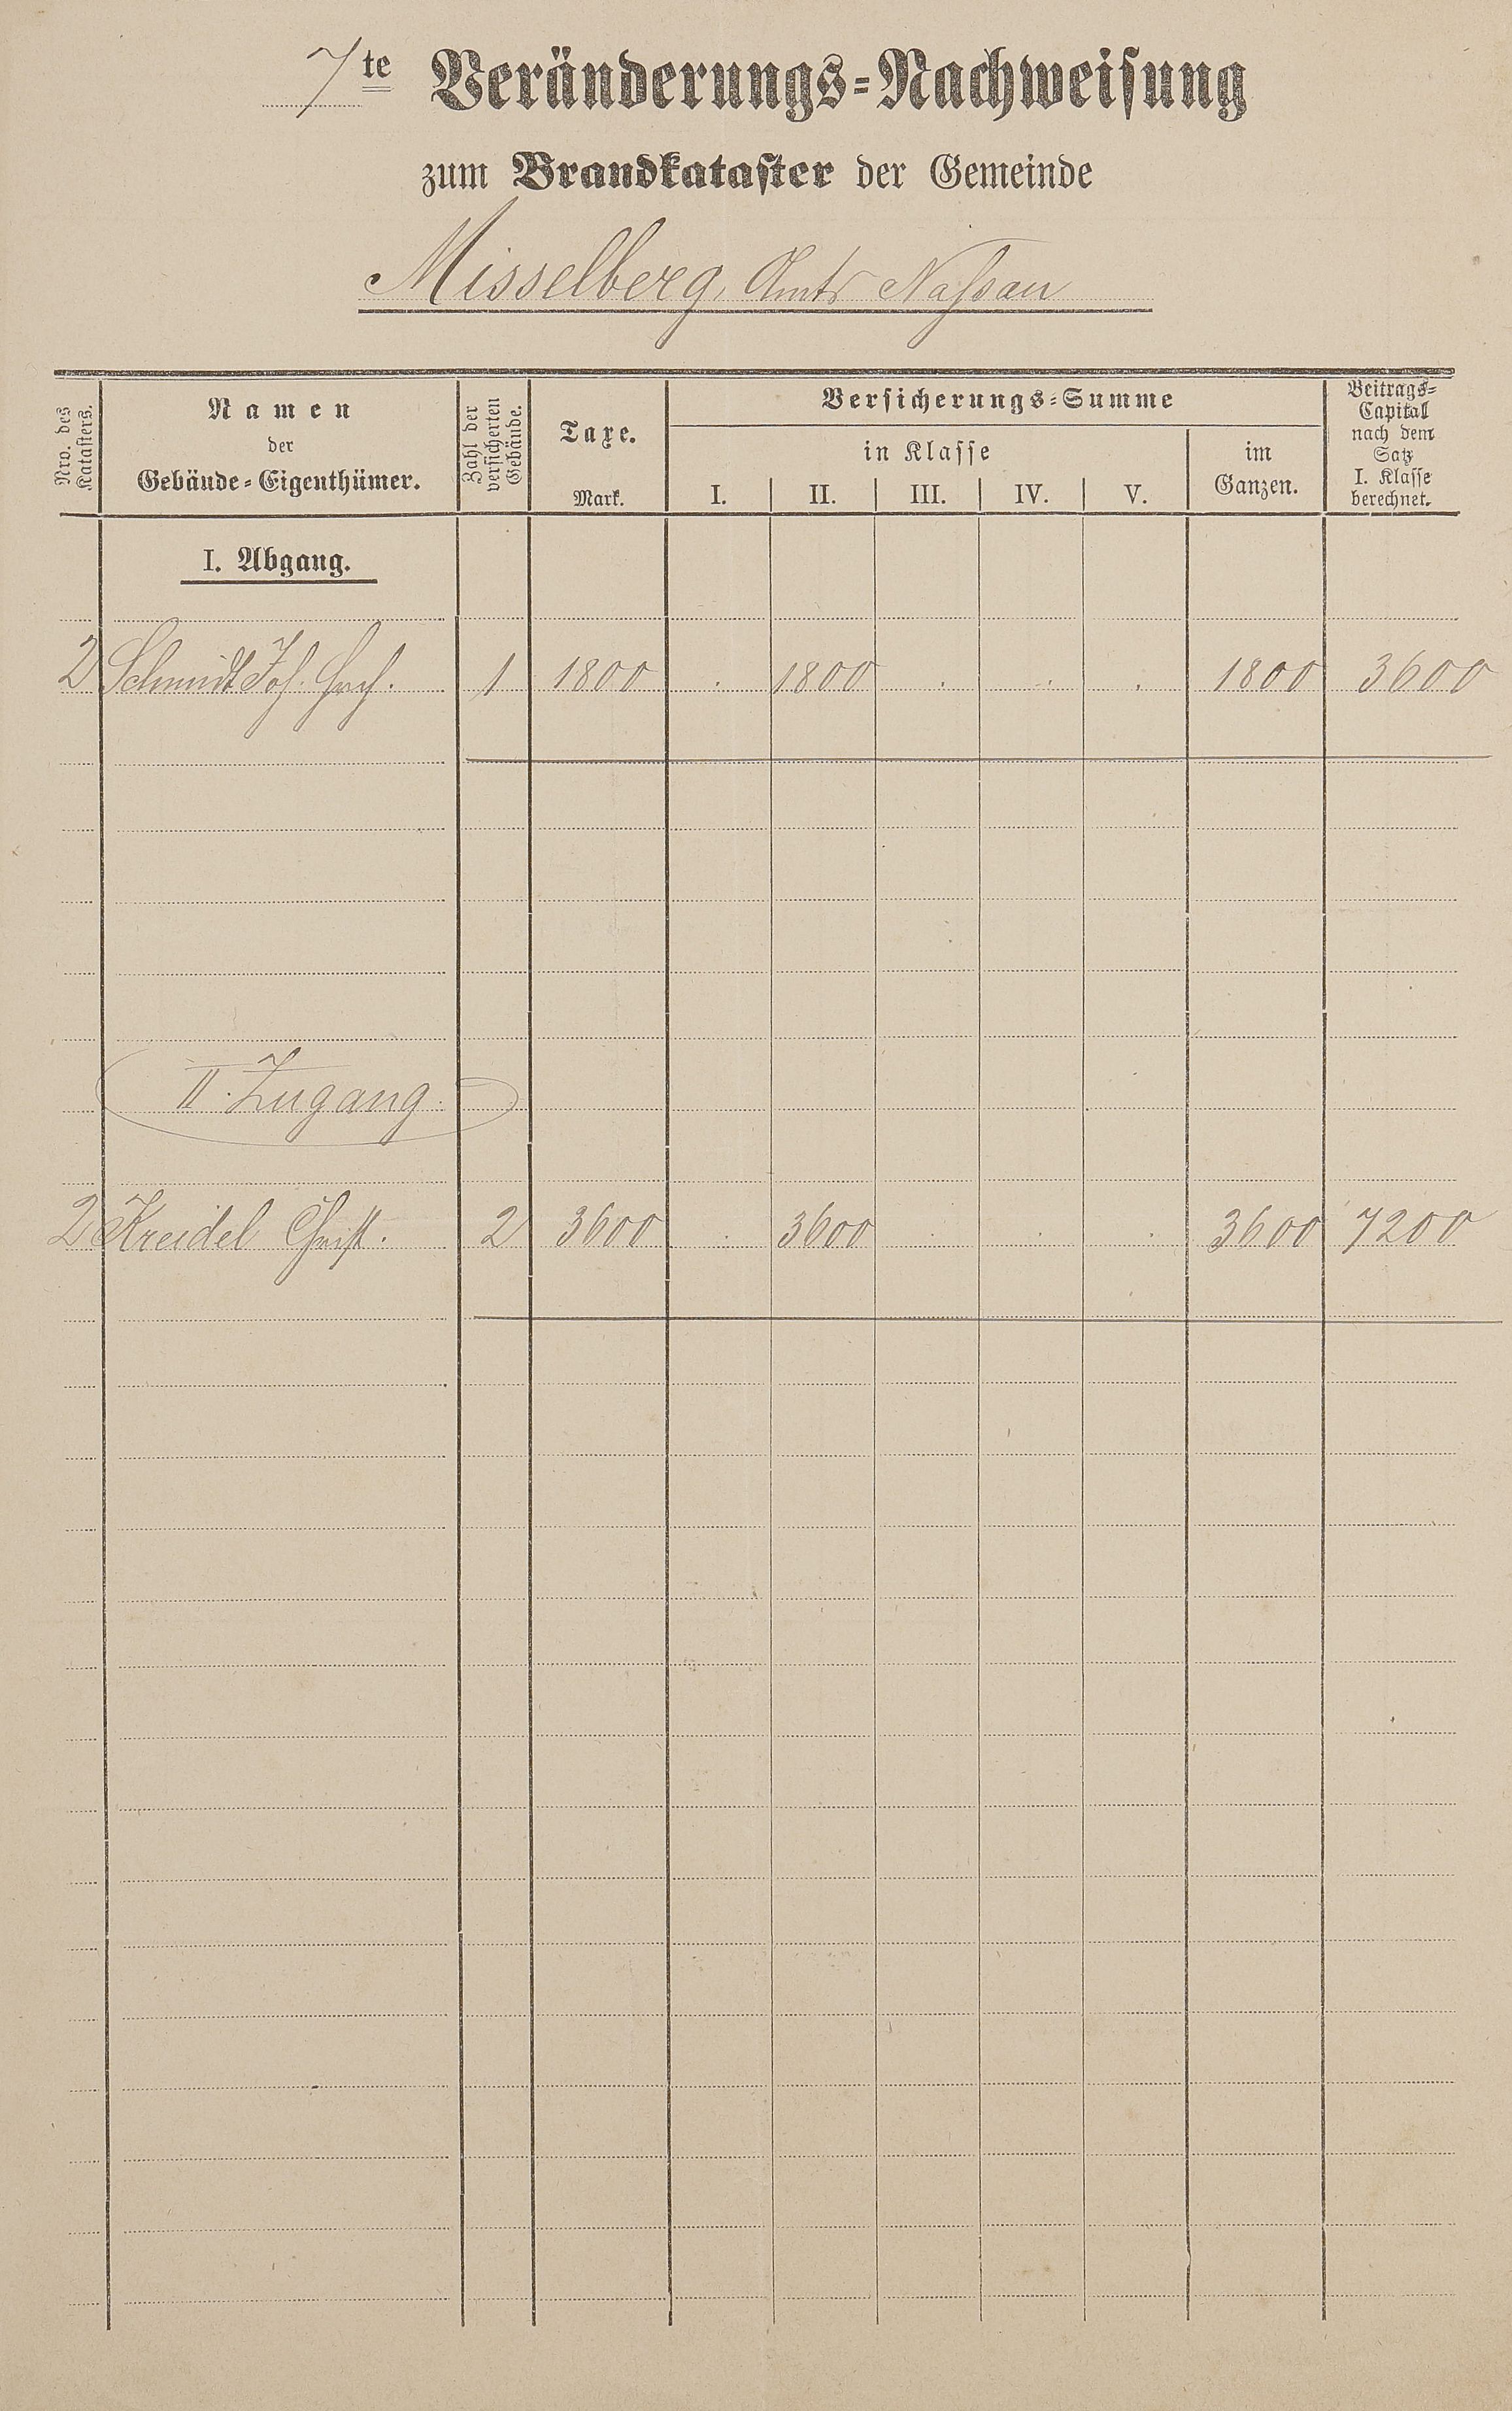 7te Veränderungs=Nachweisung
zum Brandkataster der Gemeinde
Misselberg, Amts Nassau
Nro. des Katasters.
Namen
der
Gebäude=Eigenthümer.
Zahl der versicherten Gebäude.
Taxe.
Mark.
Versicherungs=Summe
in Klasse
I. II. III. IV. V.
im
Ganzen.
Beitrags=
Capital
nach dem
Satz
I. Klasse
berechnet.
I. Abgang.
2 Schmidt Joh. 1 1800 . 1800 . . . 1800 3600
II. Zugang.
2 Kreidel Christ. 2 3600 . 3600 . . . 3600 7200